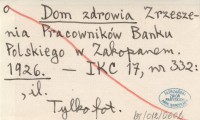 o Dom zdrowia Zrzesze-
nia Pracowników Banku
Polskiego w Zakopanem.
1926. — IKC 17, nr 332:
, il.
Tylko fot.